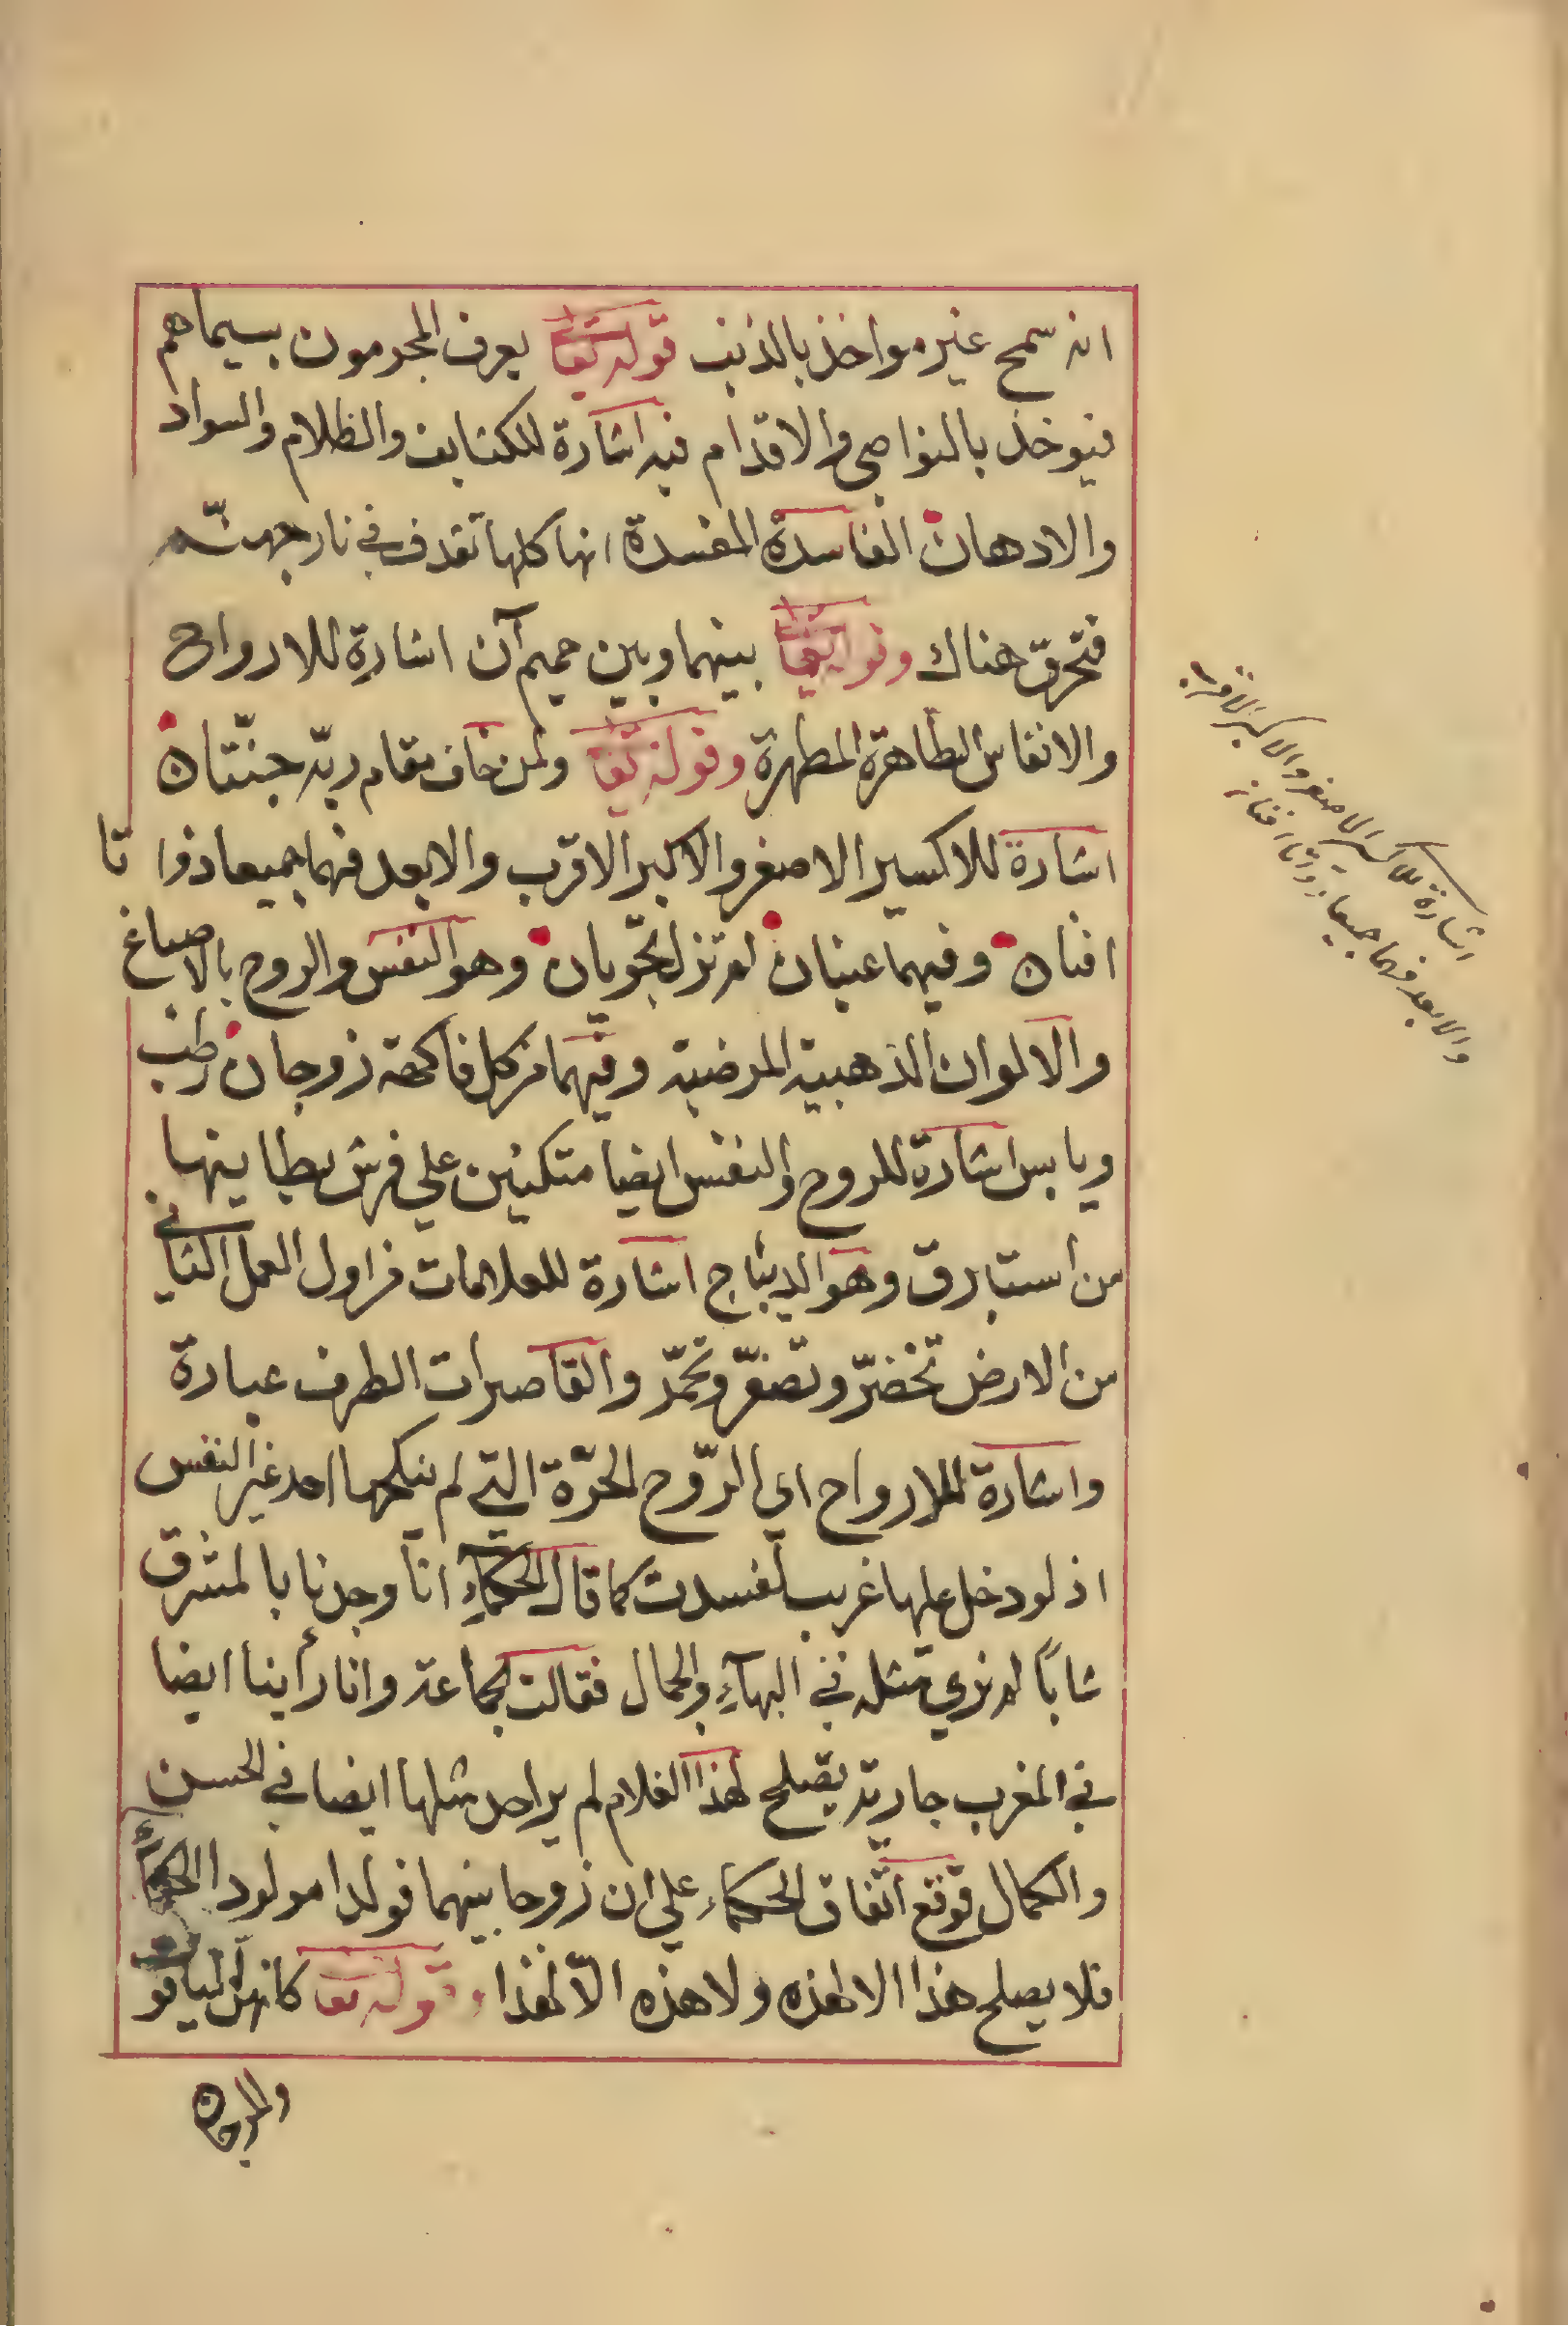 انه سمح غير مواخذ بالذنب قوله تعا يعرف المجرمون بسيماهم
فيوخذ بالنواصي والاقدام فيه اشارة للكثايف والظلام والسواد
والادهان الفاسدة المفسدة انها كلها تقدف في نار جهنّم
فتحرق هناك وقوله تعا بينهما وبين حميم آن اشارة للارواح
والانفاس الطاهرة المطهرة وقوله تعا ولمن خاف مقام ربّه جنّتان
اشارة للاكسير الاصغر والاكبر الاقرب والابعد فهما جميعا ذواتا
افنان وفيهما عينان لم تزل تجريان وهو النفس والروح بالاصباغ
والالوان الذهبية المرضية وفيهما من كل فاكهة زوجان رطب
ويابس اشارة للروح والنفس ايضا متكئين علي فرش بطاينها
من استبرق وهو الديباج اشارة للعلامات في اول العمل الثاني
من الارض تخضرّ وتصفرّ وتحمّر والقاصرات الطرف عبارة
واشارة للارواح اي الرّوح الحرّة التي لم ينكحها احد غير النفس
اذ لو دخل عليها غريب لفسدت كما قال الحكماء انا وجدنا بالمشرق
شابًا لم نري مثله في البهآء والجمال فقالت جماعة وانا رأينا ايضا
في المغرب جارية تصلح لهذا الغلام لم ير احد مثلها ايضا في الحسن
والكمال فوقع اتّفاق الحكماء علي ان زوجا بينهما فولدا مولود الحكمأ
فلا يصلح هذا الا لهذه ولا هذه الّا لهذا وقوله تعا كانهن الياقوت
والمرجان
اشارة للاكسير الاصغر والاكبر الاقرب
والابعد فهما جميعا ذواتا افنان